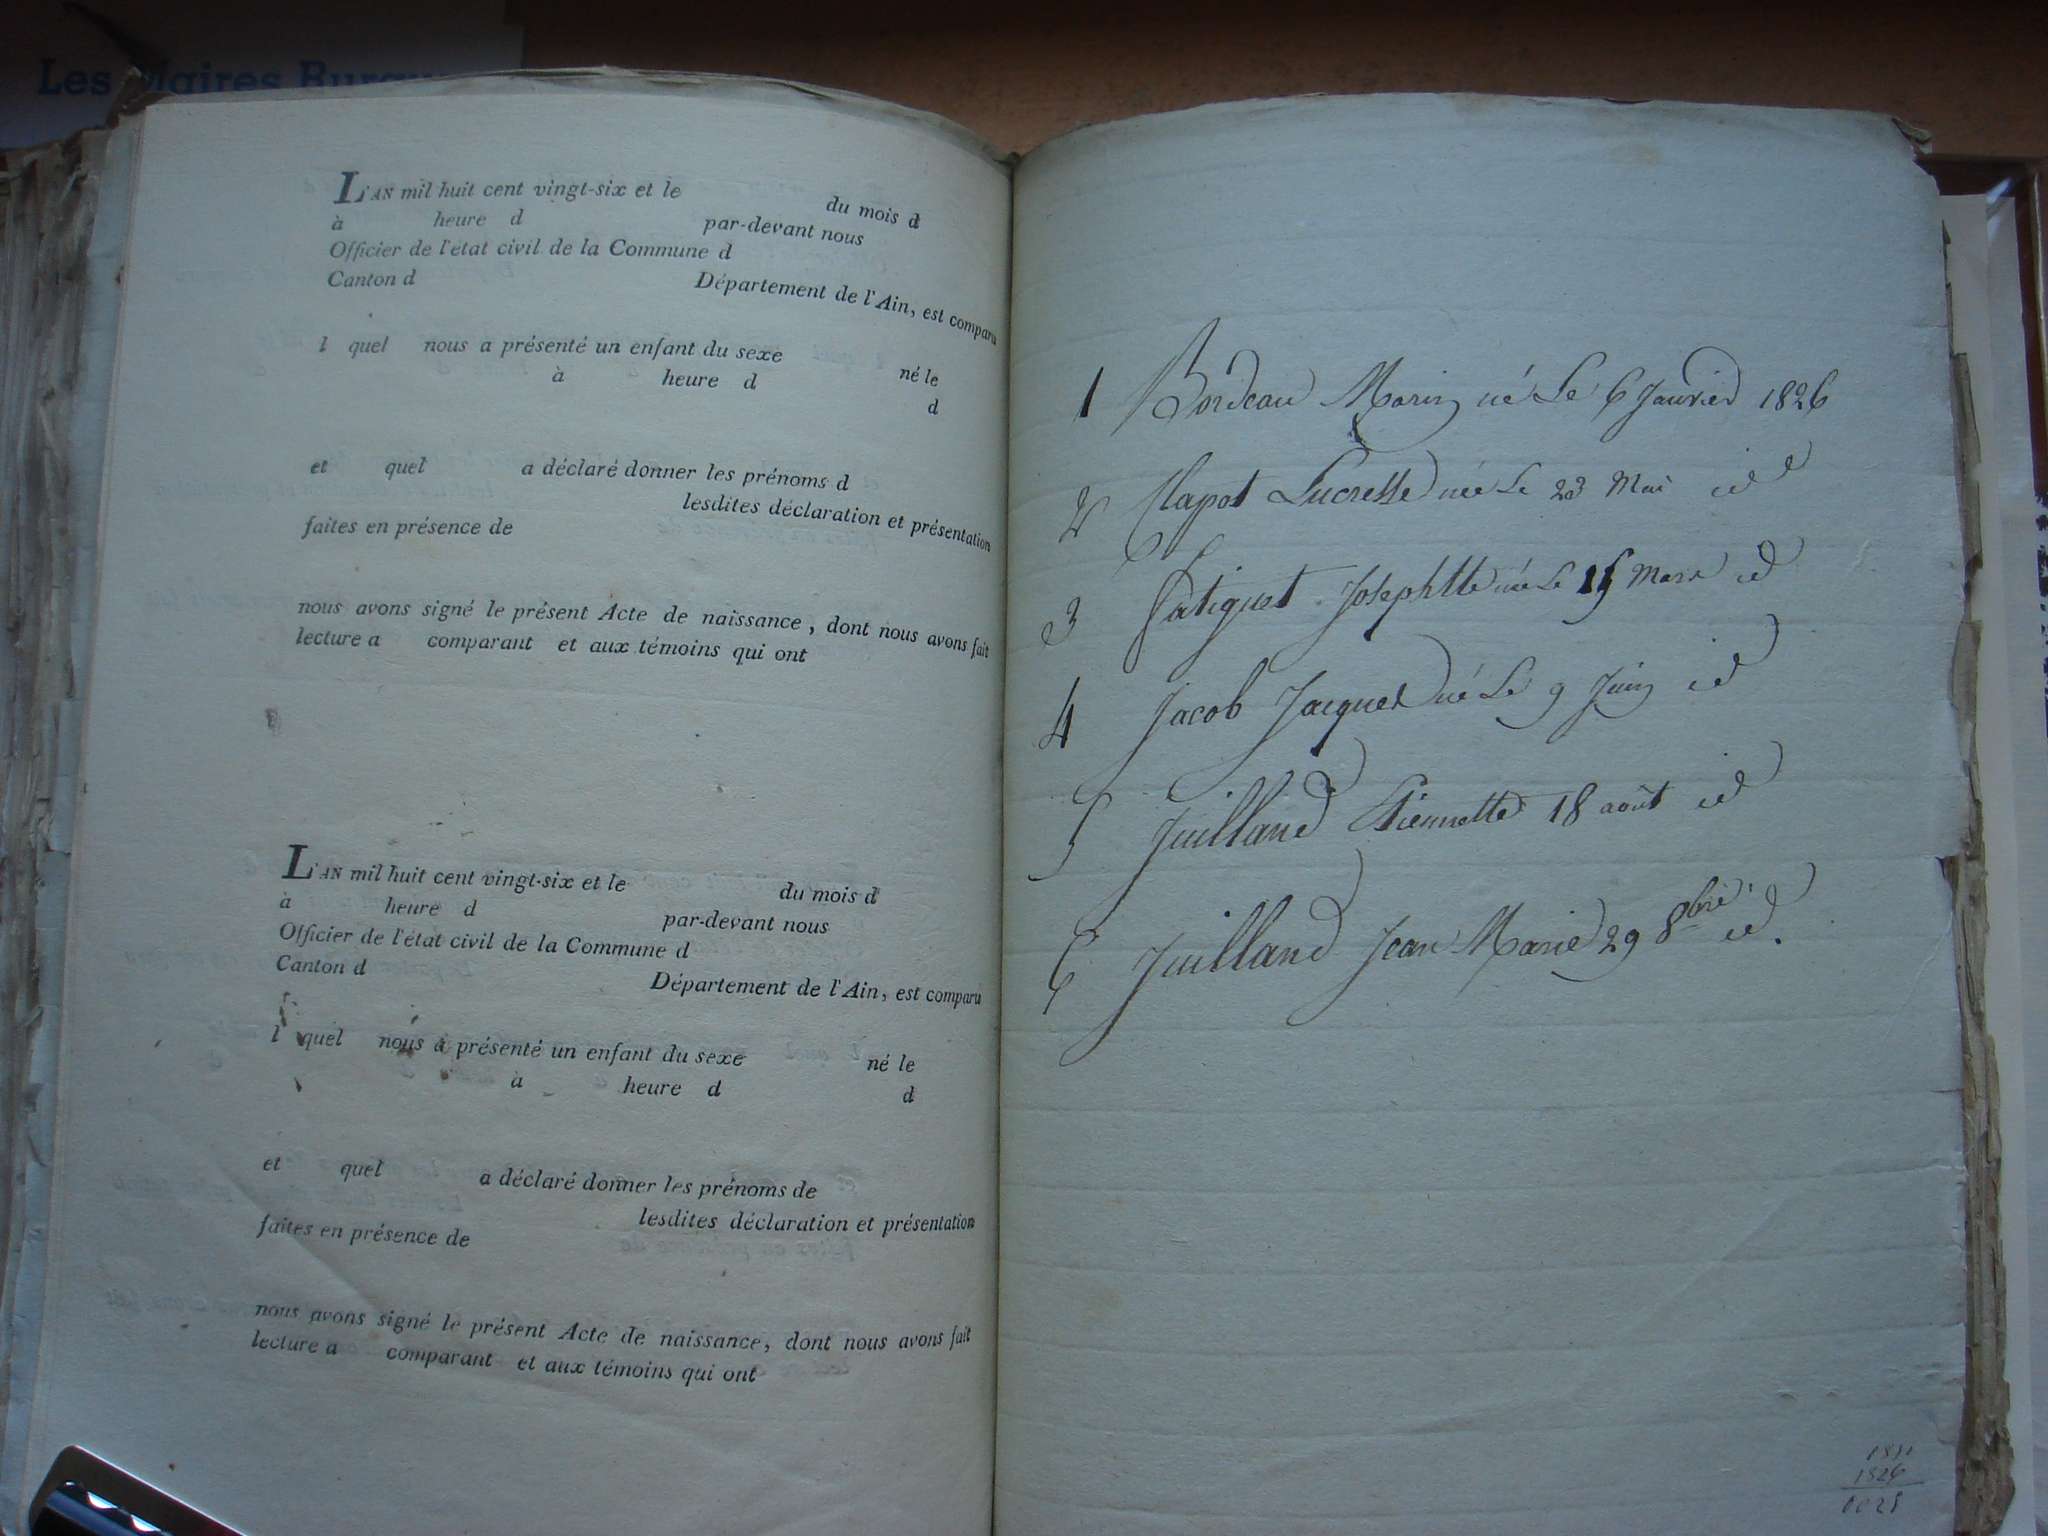 Les Maires
L'AN mil huit cent vingt-six et le du mois d
à heure d par-devant nous
Officier de l'état civil de la Commune d
Canton d Département de l'Ain, est comparu
l quel nous a présenté un enfant du sexe né le
à heure d
d
et quel a déclaré donner les prénoms d
lesdites déclaration et présentation
faites en présence de
nous avons signé le présent Acte de naissance, dont nous avons fait
lecture a comparant et aux témoins qui ont
L'AN mil huit cent vingt-six et le du mois d
à heure d par-devant nous
Officier de l'état civil de la Commune d
Canton d Département de l'Ain, est comparu
l quel nous a présenté un enfant du sexe né le
à heure d
d
et quel a déclaré donner les prénoms de
lesdites déclaration et présentation
faites en présence de
nous avons signé le présent Acte de naissance, dont nous avons fait
lecture a comparant et aux témoins qui ont
1 Bordeau Marin né Le 6 Janvier 1826
2 Clapot Lucresse née Le 23 Mai id
3 Fatiguet Josephtte née Le 15 Mars id
4 Jacob Jacques né Le 9 Juin id
5 Juilland Piennette 18 août id
6 Juilland Jean Marie 29 8bre id.
1826